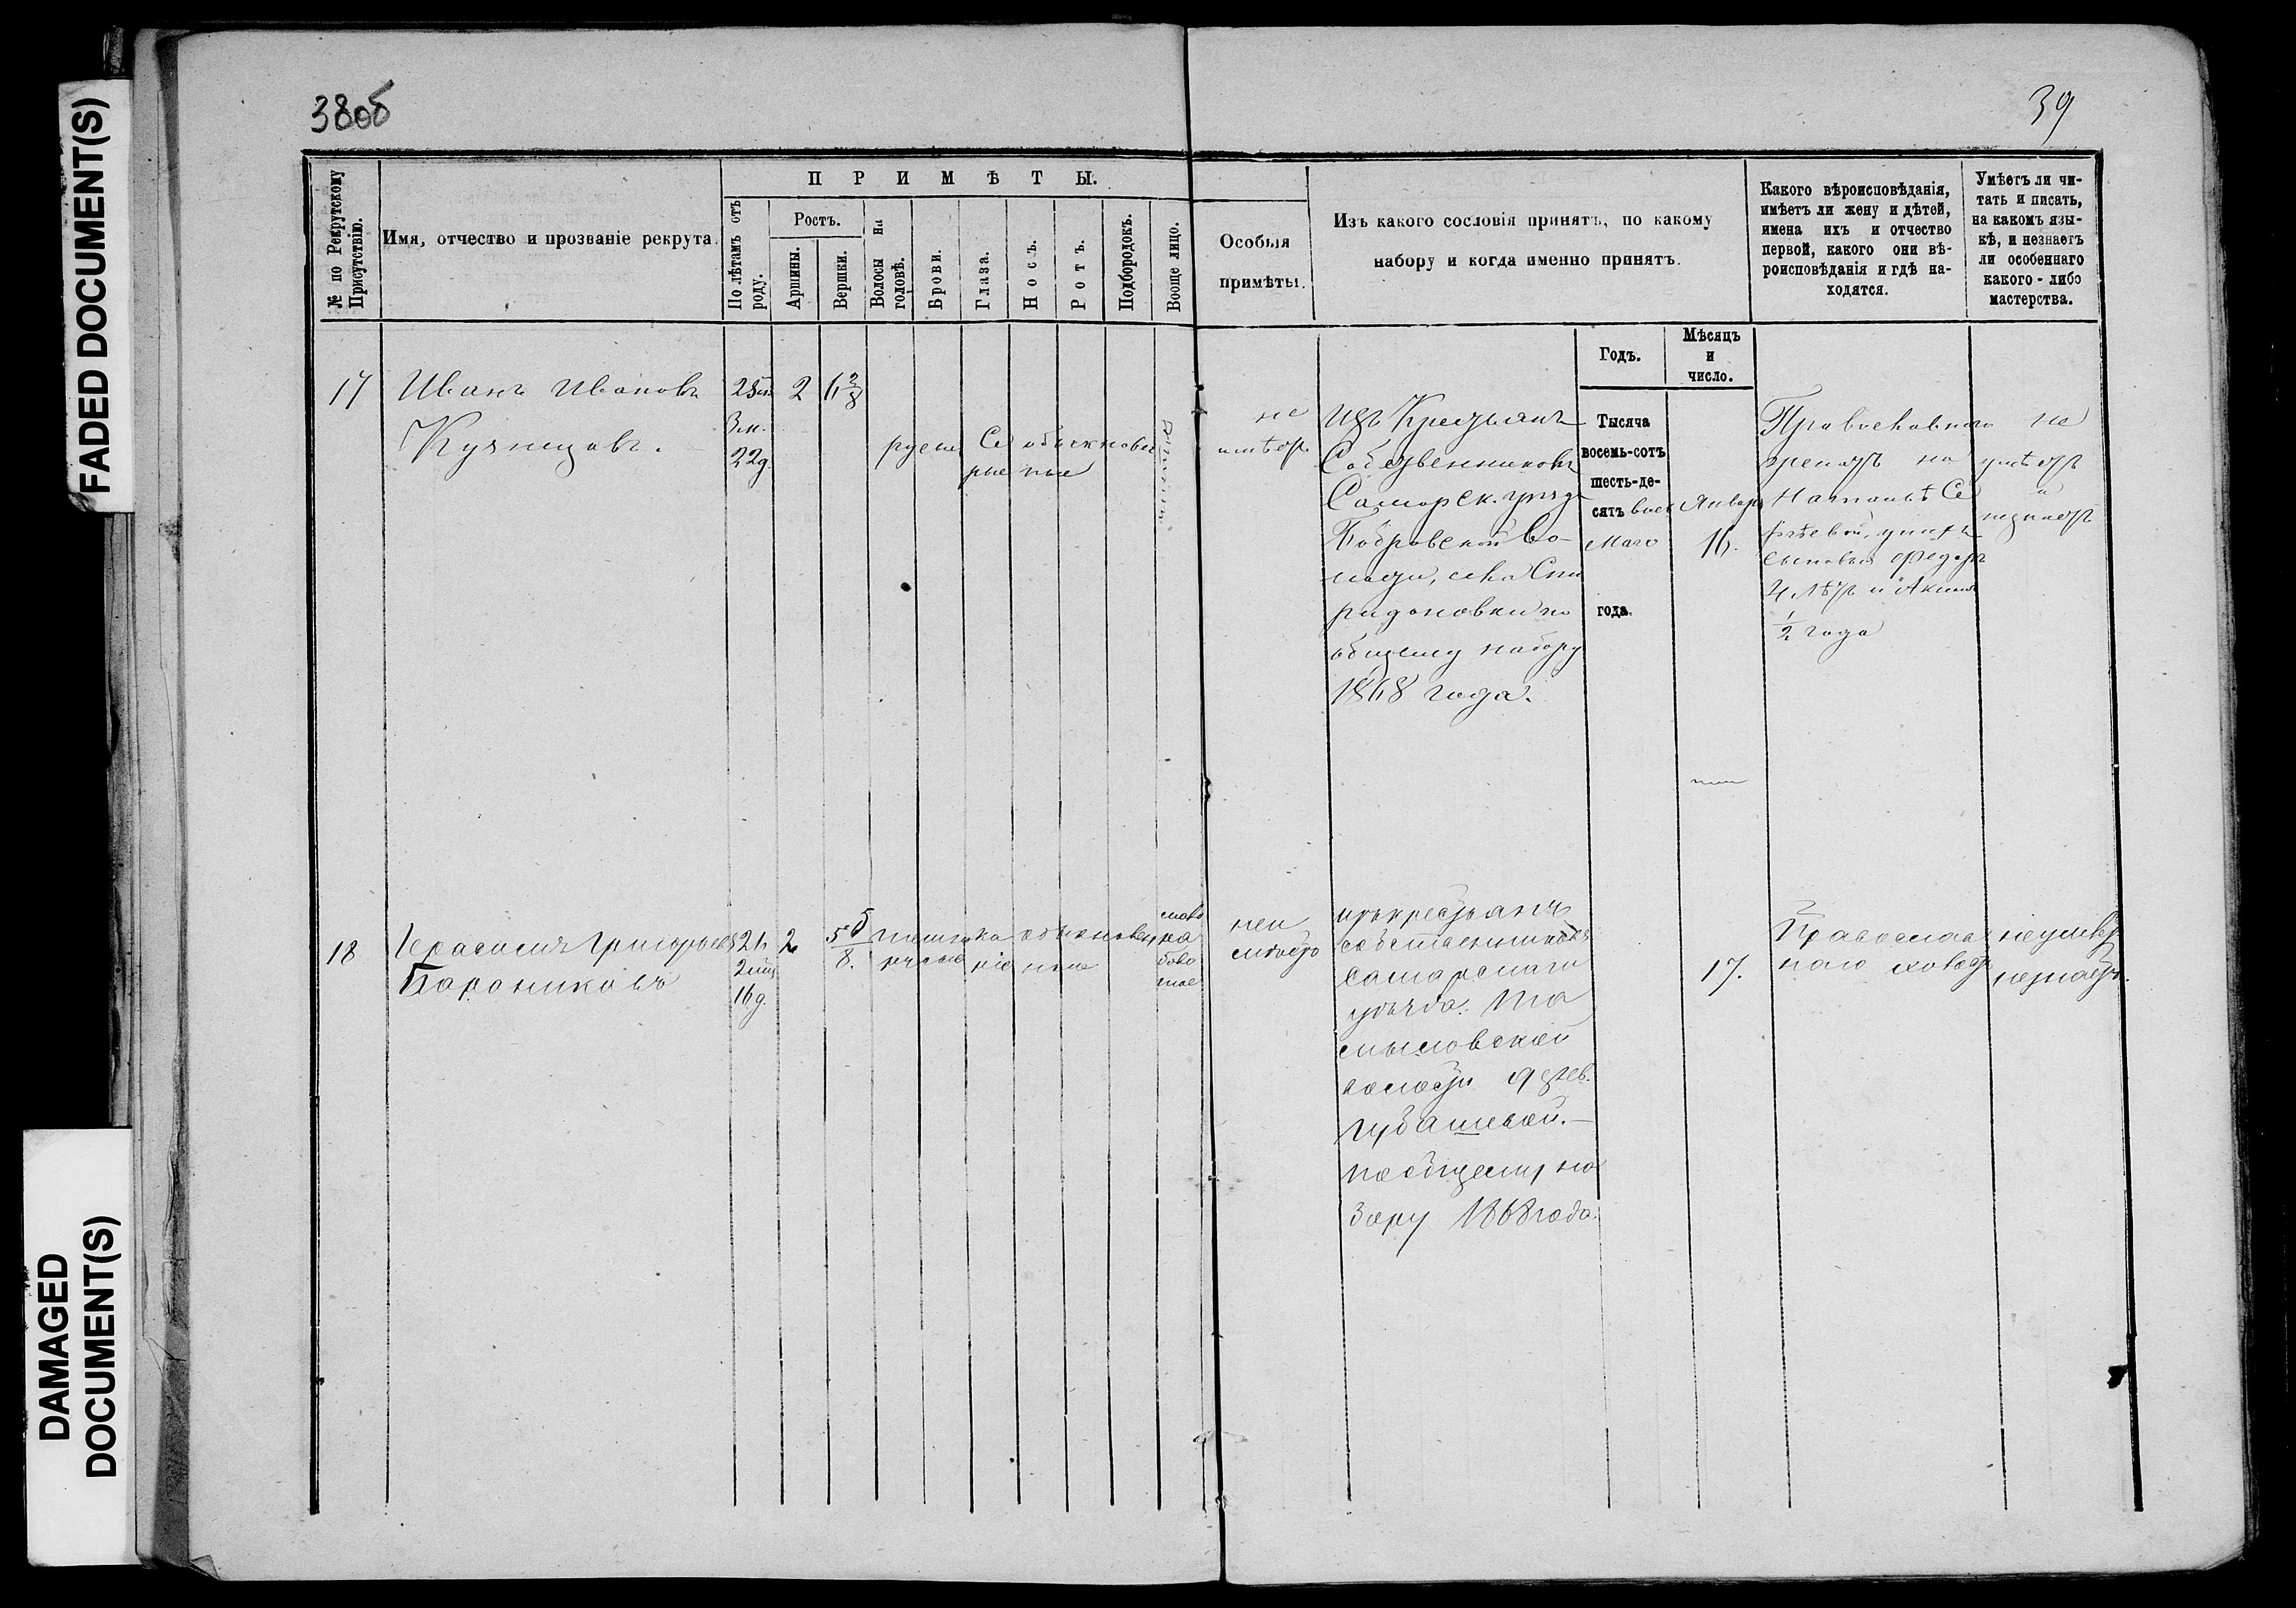 FADED DOCUMENT(S)
DAMAGED
DOCUMENT(S)
38об
39
№ по Рекрутскому
Присутствію.
Имя, отчество и прозваніе рекрута.
ПРИМѢТЫ.
По лѣтамъ отъ
роду.
Ростъ.
Аршины.
Вершки.
Волосы на
головѣ.
Брови.
Глаза.
Носъ.
Ротъ.
Подбородокъ.
Вооще лицо.
Особыя
примѣты.
Изъ какого сословія принятъ, по какому
набору и когда именно принятъ.
Какого вѣроисповѣданія,
имѣетъ ли жену и дѣтей,
имена ихъ и отчество
первой, какого они вѣ-
роисповѣданія и гдѣ на-
ходятся.
Умѣетъ ли чи-
тать и писать,
на какомъ язы-
кѣ, и незнаетъ
ли особеннаго
какого-либо
мастерства.
Годъ.
Мѣсяцъ
и
число.
17
Иванъ Ивановъ
Кузнецовъ.
25
3 м.
22 д.
2
6 2/8
русые
Се
рые
обыкновен
ные
не
имѣетъ
Изъ Крестьянъ
Собственниковъ
Самарск. уѣзда
Бобровской Во-
лости, села Спи
ридоновки по
общему набору
1868 года.
Тысяча
восемь-сотъ
шесть-де-
сятъ вось
маго
года.
Январь
16.
Православного
женатъ на
Наталье Се
сыновья Федоръ
4 лѣтъ и Акимъ
1/2 года
не
умѣетъ
и
незнаетъ
18
Герасимъ Григорьевъ
Баранниковъ
21
2 мѣс
16 д.
2
5 5/8.
темно
русые
ка
ріе
обыкновен
ные
неи
мѣетъ
изъ крестьянъ
собственниковъ
Самарскаго
уѣзда.
волости дер.
по общему на
бору 1868 года.
17.
Православ
наго холостъ
неумѣетъ
незнаетъ.